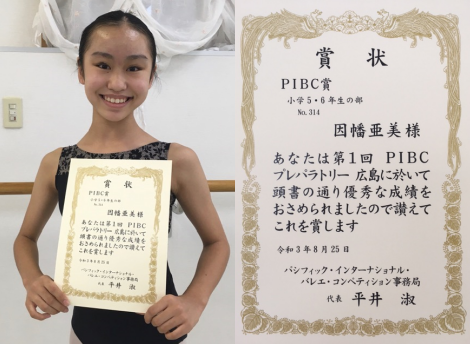 賞状
PIBC賞
小学5・6年生の部
No. 314
因幡亜美様
あなたは第1回 PIBC
プレパラトリー 広島に於いて
頭書の通り優秀な成績を
おさめられましたので讃えて
これを賞します
令和3年8月25日
パシフィック・インターナショナル・
バレエ・コンペティション事務局
代表 平井 淑
賞状
PIBC賞
小学5・6年生の部
No. 314
因幡亜美様
あなたは第1回 PIBC
プレパラトリー 広島に於いて
頭書の通り優秀な成績を
おさめられましたので讃えて
これを賞します
令和3年8月25日
パシフィック・インターナショナル・
バレエ・コンペティション事務局
代表 平井 淑